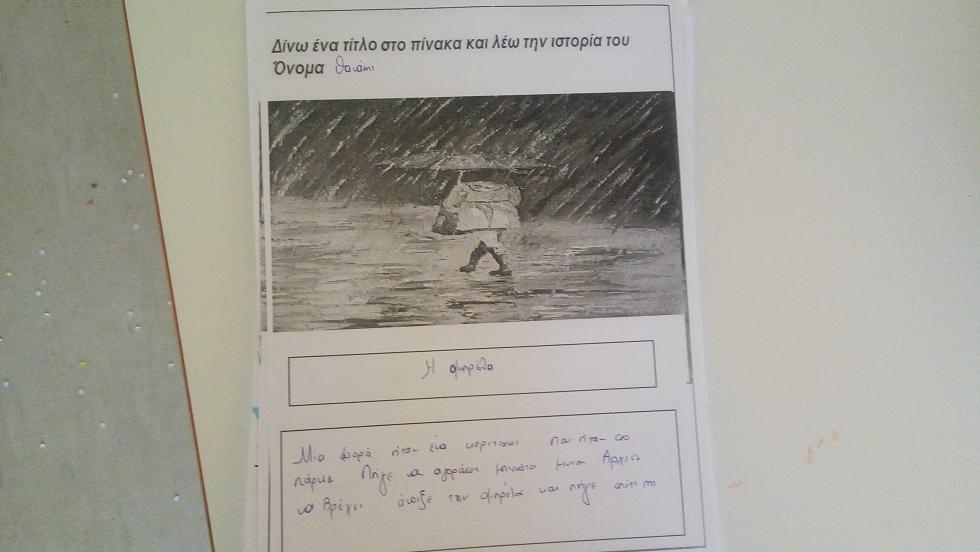 Δίνω ένα τίτλο στο πίνακα και λέω την ιστορία του
Όνομα
Η ομπρέλα
Μια φορά ήταν ένα κοριτσάκι που ήταν στο
πάρκο Πήγε να αγοράσει Άρχισε
να βρέχει άνοιξε την ομπρέλα και πήγε σπίτι της